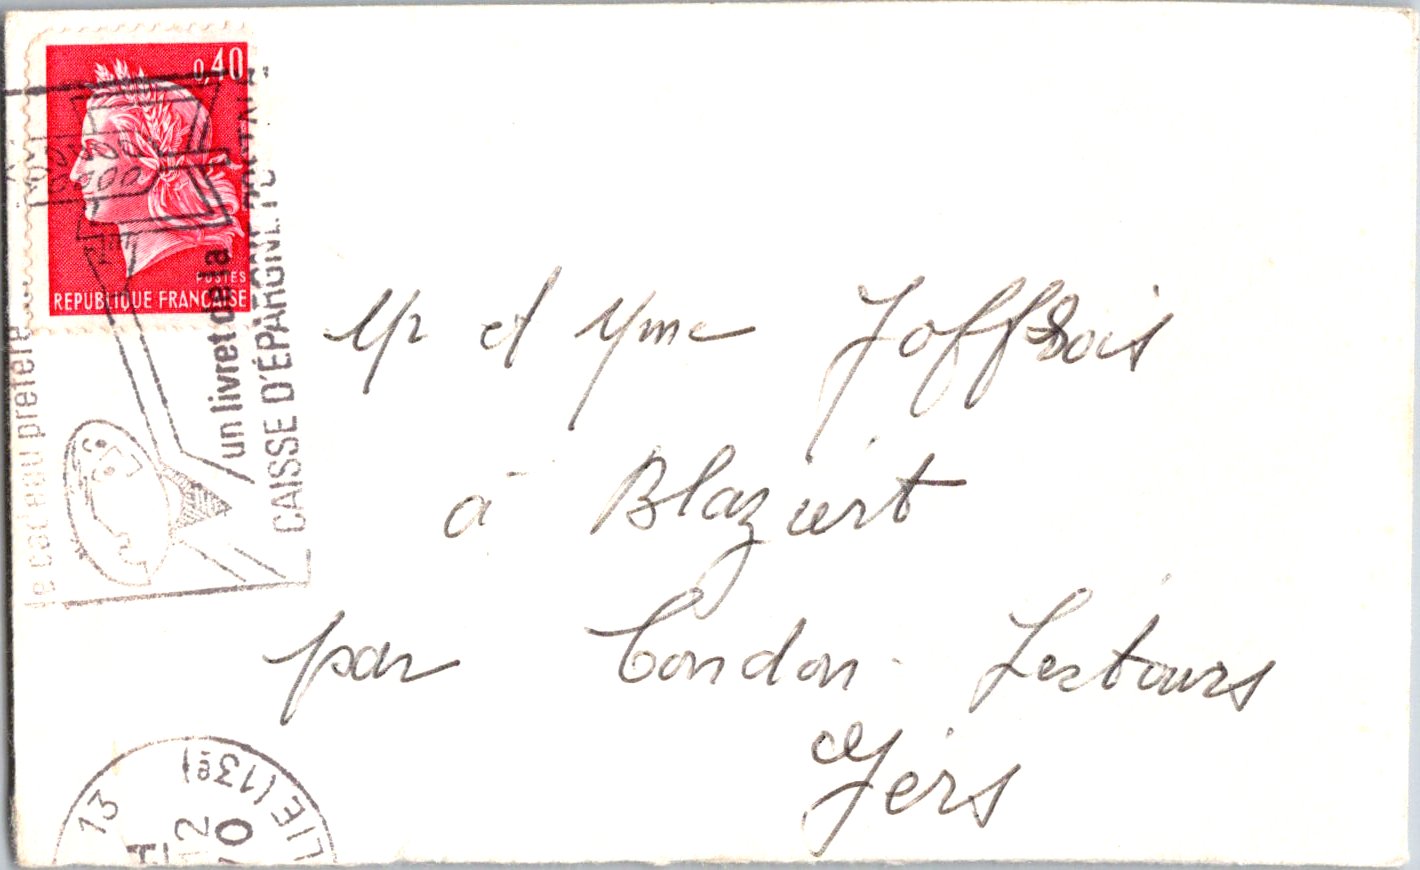 0,40
POSTES
REPUBLIQUE FRANÇAISE
le cadeau préféré
un livret de la
CAISSE D'ÉPARGNE
Mr et Mme Joffrois
à Blaziert
par Condon Lestours
Gers
13
LIE (13e)
12